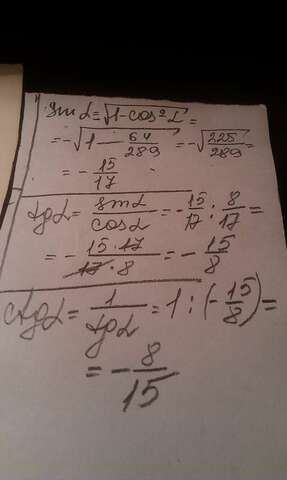 sin α = √(1-cos² α) =
= -√(1 - 64/289) = -√(225/289) =
= - 15/17
tg α = sin α / cos α = - 15/17 : 8/17 =
= - (15 · 17)/(17 · 8) = - 15/8
ctg α = 1/tg α = 1 : (- 15/8) =
= - 8/15